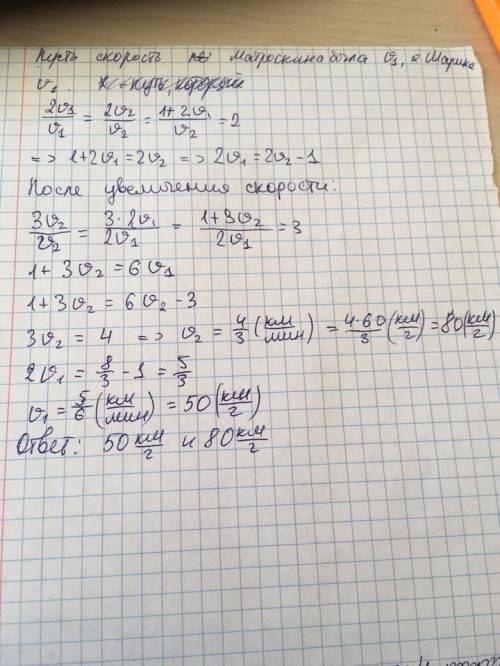 Пусть скорость Матроскина была v₁, а Шарика
v₂. X - путь, который
2v₁/v₁ = 2v₂/v₂ = 1+2v₁/v₂ = 2
=> 1+2v₁ = 2v₂ => 2v₁ = 2v₂ - 1
После увеличения скорости:
3v₂/v₂ = 3·2v₁/2v₁ = 1+3v₂/2v₁ = 3
1+3v₂ = 6v₁
1+3v₂ = 6v₂ - 3
3v₂ = 4 => v₂ = 4/3 (км/мин) = 4·60/3 (км/г) = 80 (км/г)
2v₁ = 8/3 - 1 = 5/3
v₁ = 5/6 (км/мин) = 50 (км/г)
Ответ: 50 км/г и 80 км/г